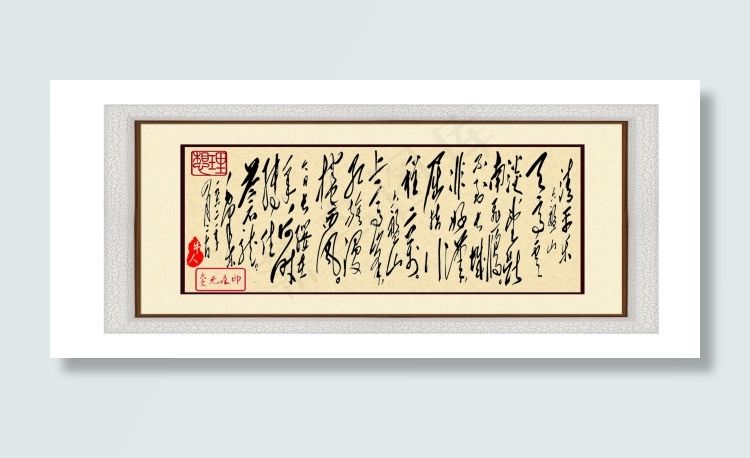 清平乐
六盘山
天高云
淡望断
南飞雁。
不到长城
非好汉
屈指行
程二万。
六盘山
上高峰
红旗漫
卷西风。
今日长缨在
手，何时
缚住
苍龙。
毛泽东
理想